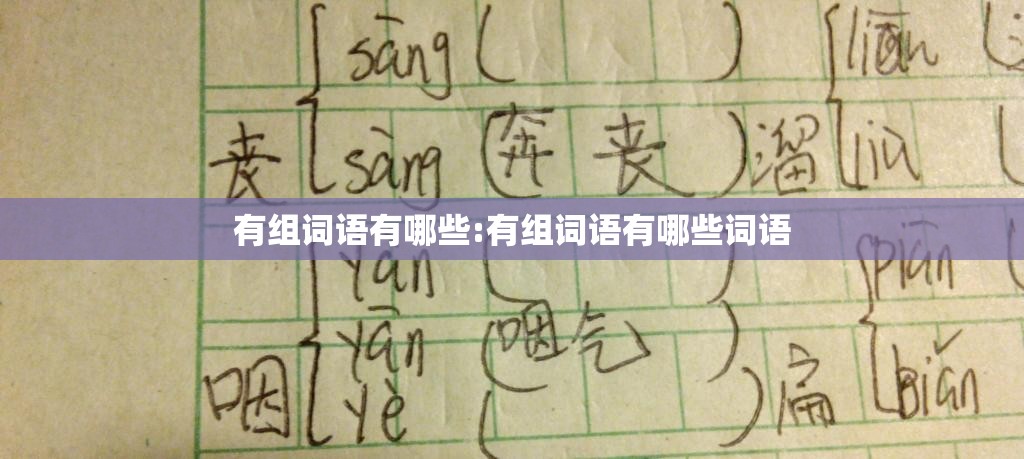 sāng ( )
丧 sāng (奔丧) 溜 liù (
有组词语有哪些:有组词语有哪些词语
yān ( ) piān (
yān (咽气)
咽 yè ( ) 扁 biǎn